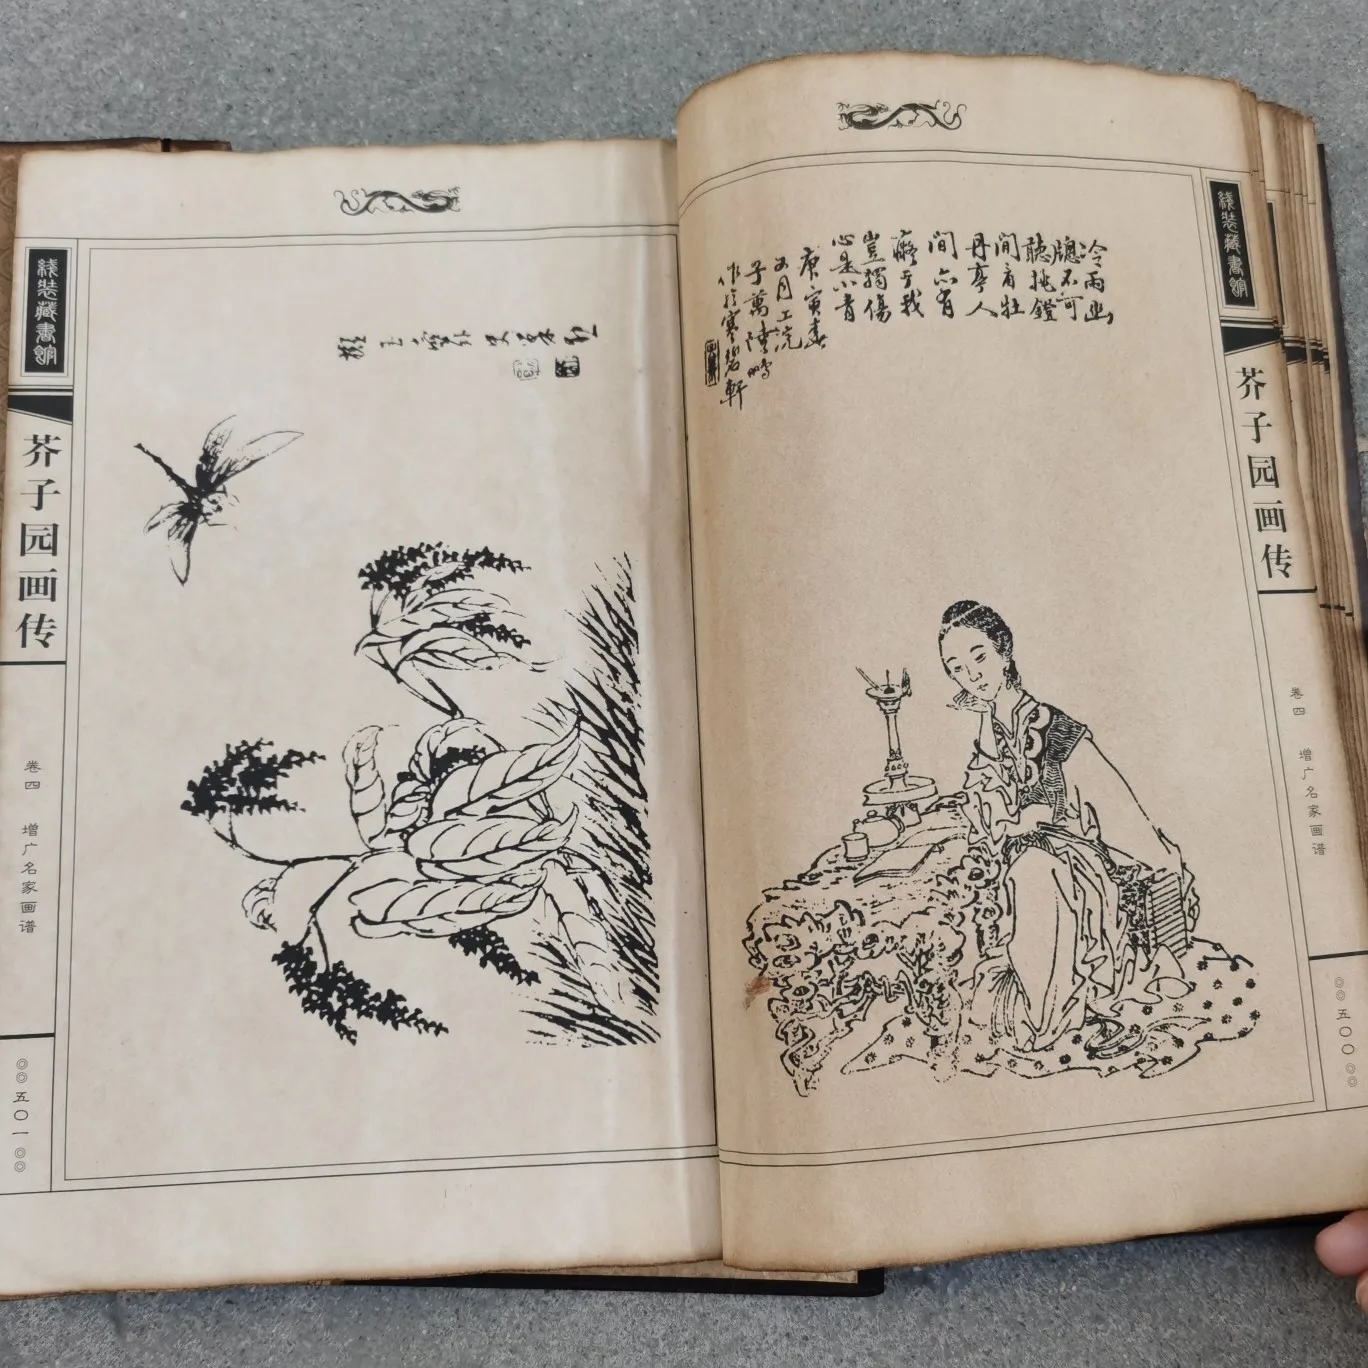 綫裝藏書館
芥子园画传
卷四 增广名家画谱
◎◎五〇〇◎◎
冷雨幽
牕不可
聽挑鐙
間看牡
丹亭人
間亦有
癡于我
豈獨傷
心是小青
庚寅春
月 浣
子萬
作於寒碧軒
綫裝藏書館
芥子园画传
卷四 增广名家画谱
◎◎五〇一◎◎